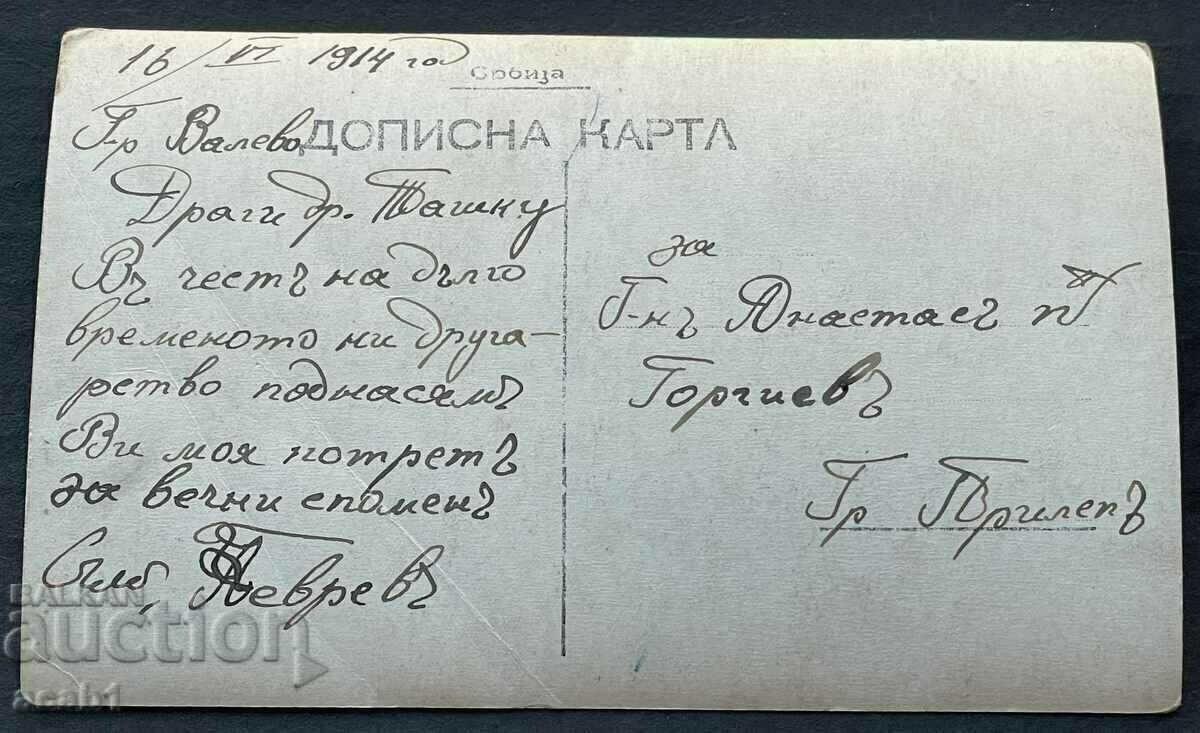 16/VI 1914 год
Србија
ДОПИСНА КАРТА
Г-р Валево
Драги др. Ташку
Въ честъ на дълго
временото ни друга-
рство поднасямъ
Ви моя потретъ
за вечни споменъ
Певревъ
за
Г-нъ Анастасъ п
Горгиевъ
Гр Прилепъ
BALKAN
auction
acab1